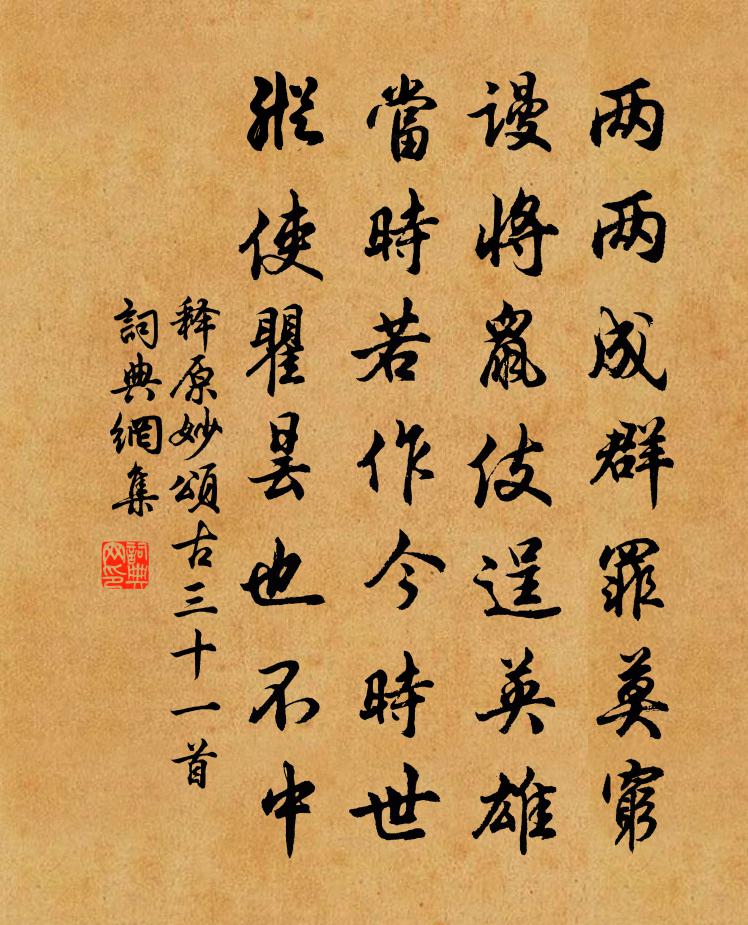 两两成群罪莫窮
谩將鼠伎逞英雄
當時若作今時世
縱使瞿昙也不中
释原妙頌古三十一首
詞典網集
詞典网印